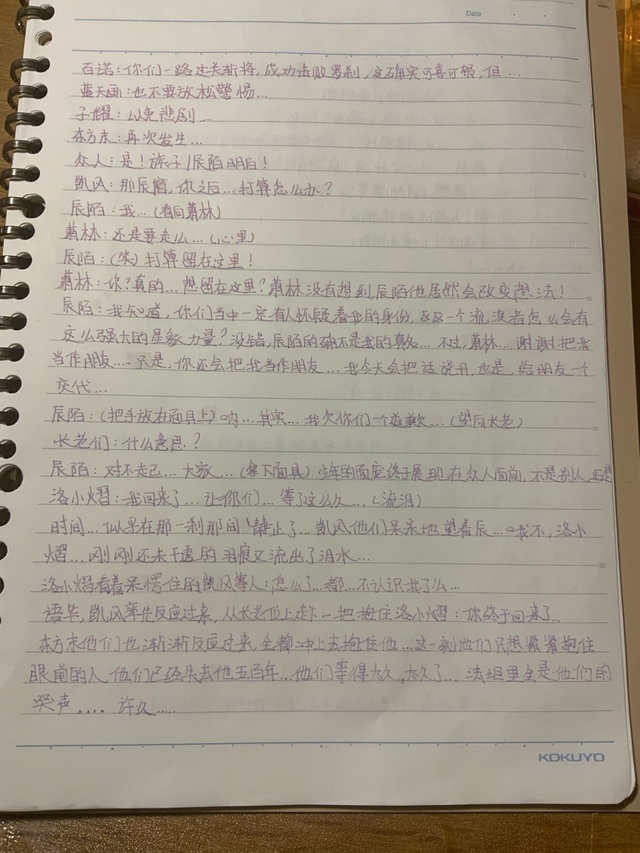 Date
百诺：你们一路过关斩将，成功击败罗刹，这确实可喜可贺，但…
蓝天画：也不要放松警惕…
子耀：以免悲剧…
东方末：再次发生…
众人：是！旅子/辰陌明白！
凯风：那辰陌，你之后…打算怎么办？
辰陌：我…（看向萧林）
萧林：还是要走么…（心里）
辰陌：（笑）打算留在这里！
萧林：你？真的…想留在这里？萧林没有想到辰陌他居然会改变想法！
辰陌：我知道，你们当中一定有人怀疑着我的身份，一个流浪者怎么会有
这么强大的星象力量？没错，辰陌的确不是我的真名…不过，萧林…谢谢把我
当作朋友…只是，你还会把我当作朋友…我今天会把话说开，也是，给朋友一个
交代…
辰陌：（把手放在面具上）呐…其实…我欠你们一个道歉…（望向长老）
长老们：什么意思？
辰陌：对不起…大家…（拿下面具）少年的面容终于展现在众人面前，不是别人，正是
洛小熠：我回来了…让你们…等了这么久…（流泪）
时间…似是在那一刹那间静止了…凯风他们呆呆地望着辰…哦不，洛小
熠…刚刚还未干透的泪痕又流出了泪水…
洛小熠看着呆愣住的凯风等人：怎么了…都…不认识我了么…
语毕，凯风率先反应过来，从长老位上走下一把抱住洛小熠：你终于回来了…
东方末他们也渐渐反应过来，全都冲上去抱住他…这一刻他们只想紧紧抱住
眼前的人，他们已经失去他五百年…他们等得太久，太久了…法坦里全是他们的
哭声…．许久…．．
KOKUYO